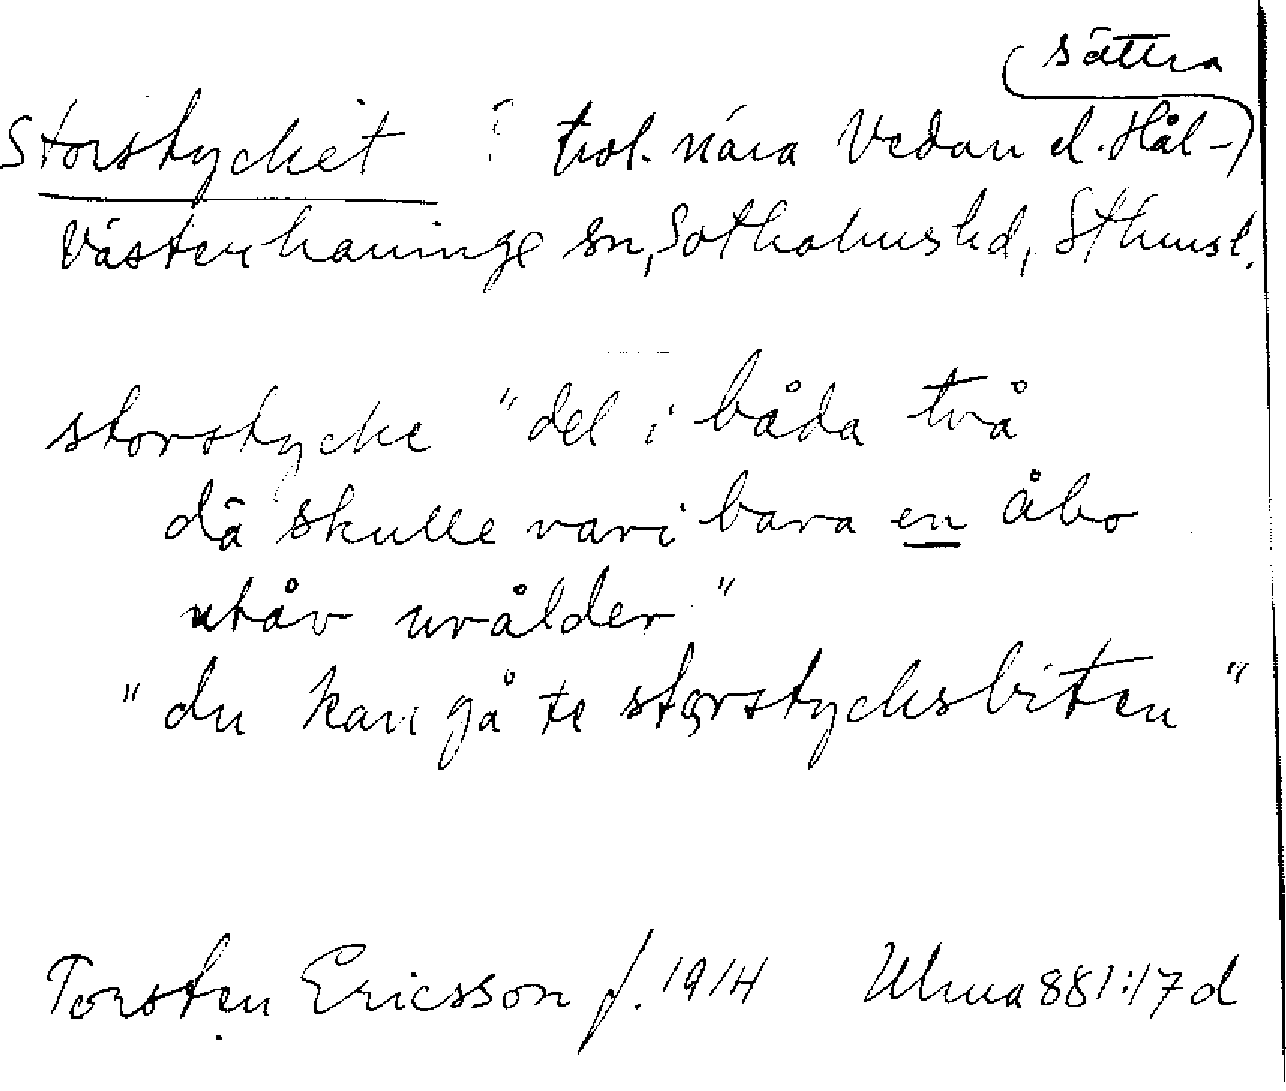 sättra
Storstycket ? trol. nära Vedan el. Hål-
Västerhaninge sn, Sotholms hd, Sthmsl.
storstycke "del i båda två
då skulle vari bara en åbo
utåv urålder"
"du kan gå te storstycksbiten"
Torsten Ericsson f. 1914 Ulma 881:17 d